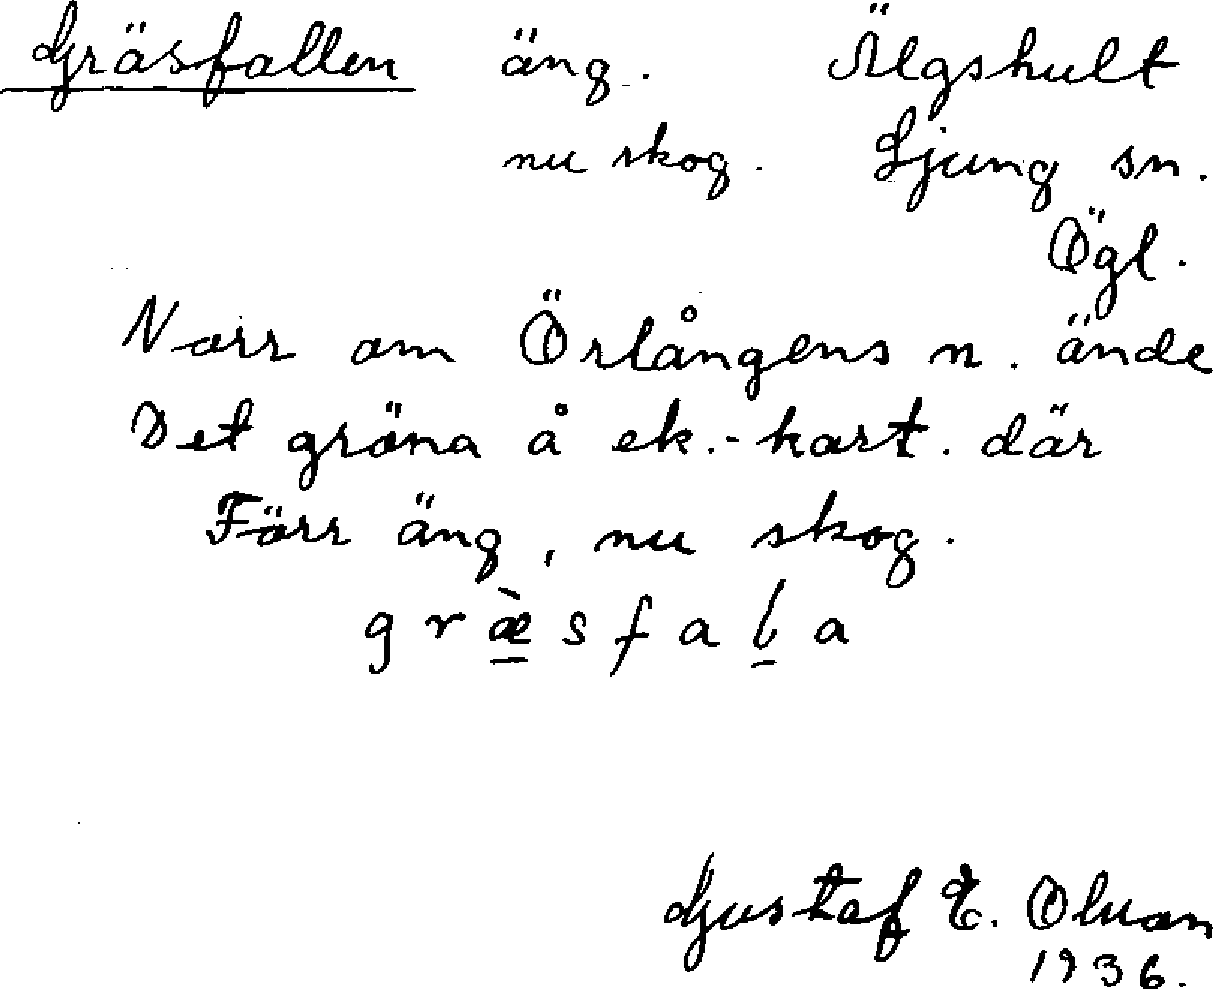 Gräsfallen äng. Älgshult
nu skog. Ljung sn.
Ögl.
Norr om Örlångens n. ände
Det gröna å ek.-kart. där
Förr äng, nu skog.
græ̀sfaḻa
Gustaf E. Olsson
1936.